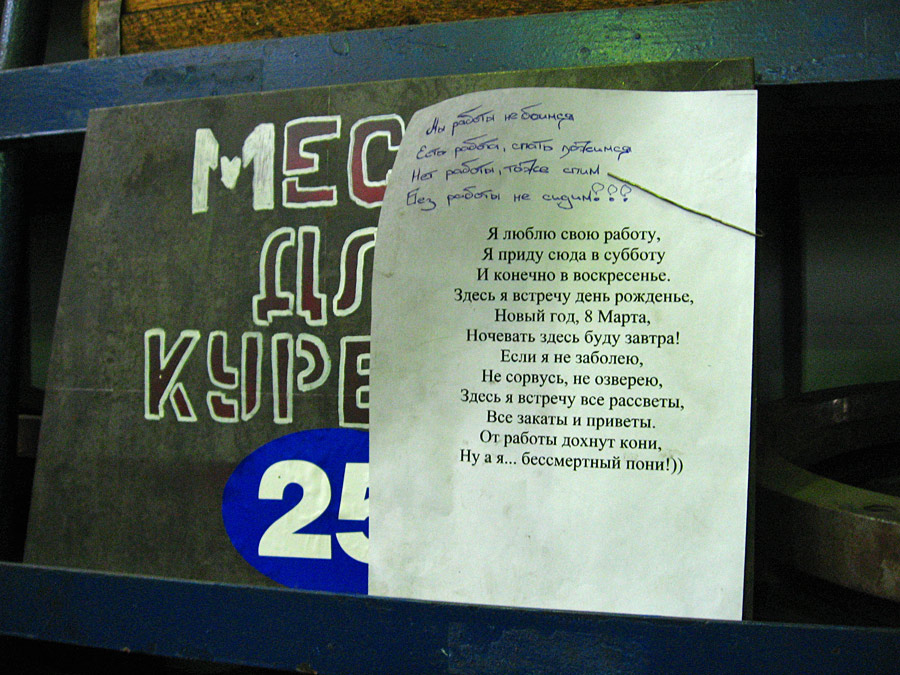 МЕС
ДЛ
КУРЕ
25
Мы работы не боимся
Есть работа, спать ложимся
Нет работы, тоже спим
Без работы не сидим!???
Я люблю свою работу,
Я приду сюда в субботу
И конечно в воскресенье.
Здесь я встречу день рожденье,
Новый год, 8 Марта,
Ночевать здесь буду завтра!
Если я не заболею,
Не сорвусь, не озверею,
Здесь я встречу все рассветы,
Все закаты и приветы.
От работы дохнут кони,
Ну а я... бессмертный пони!))